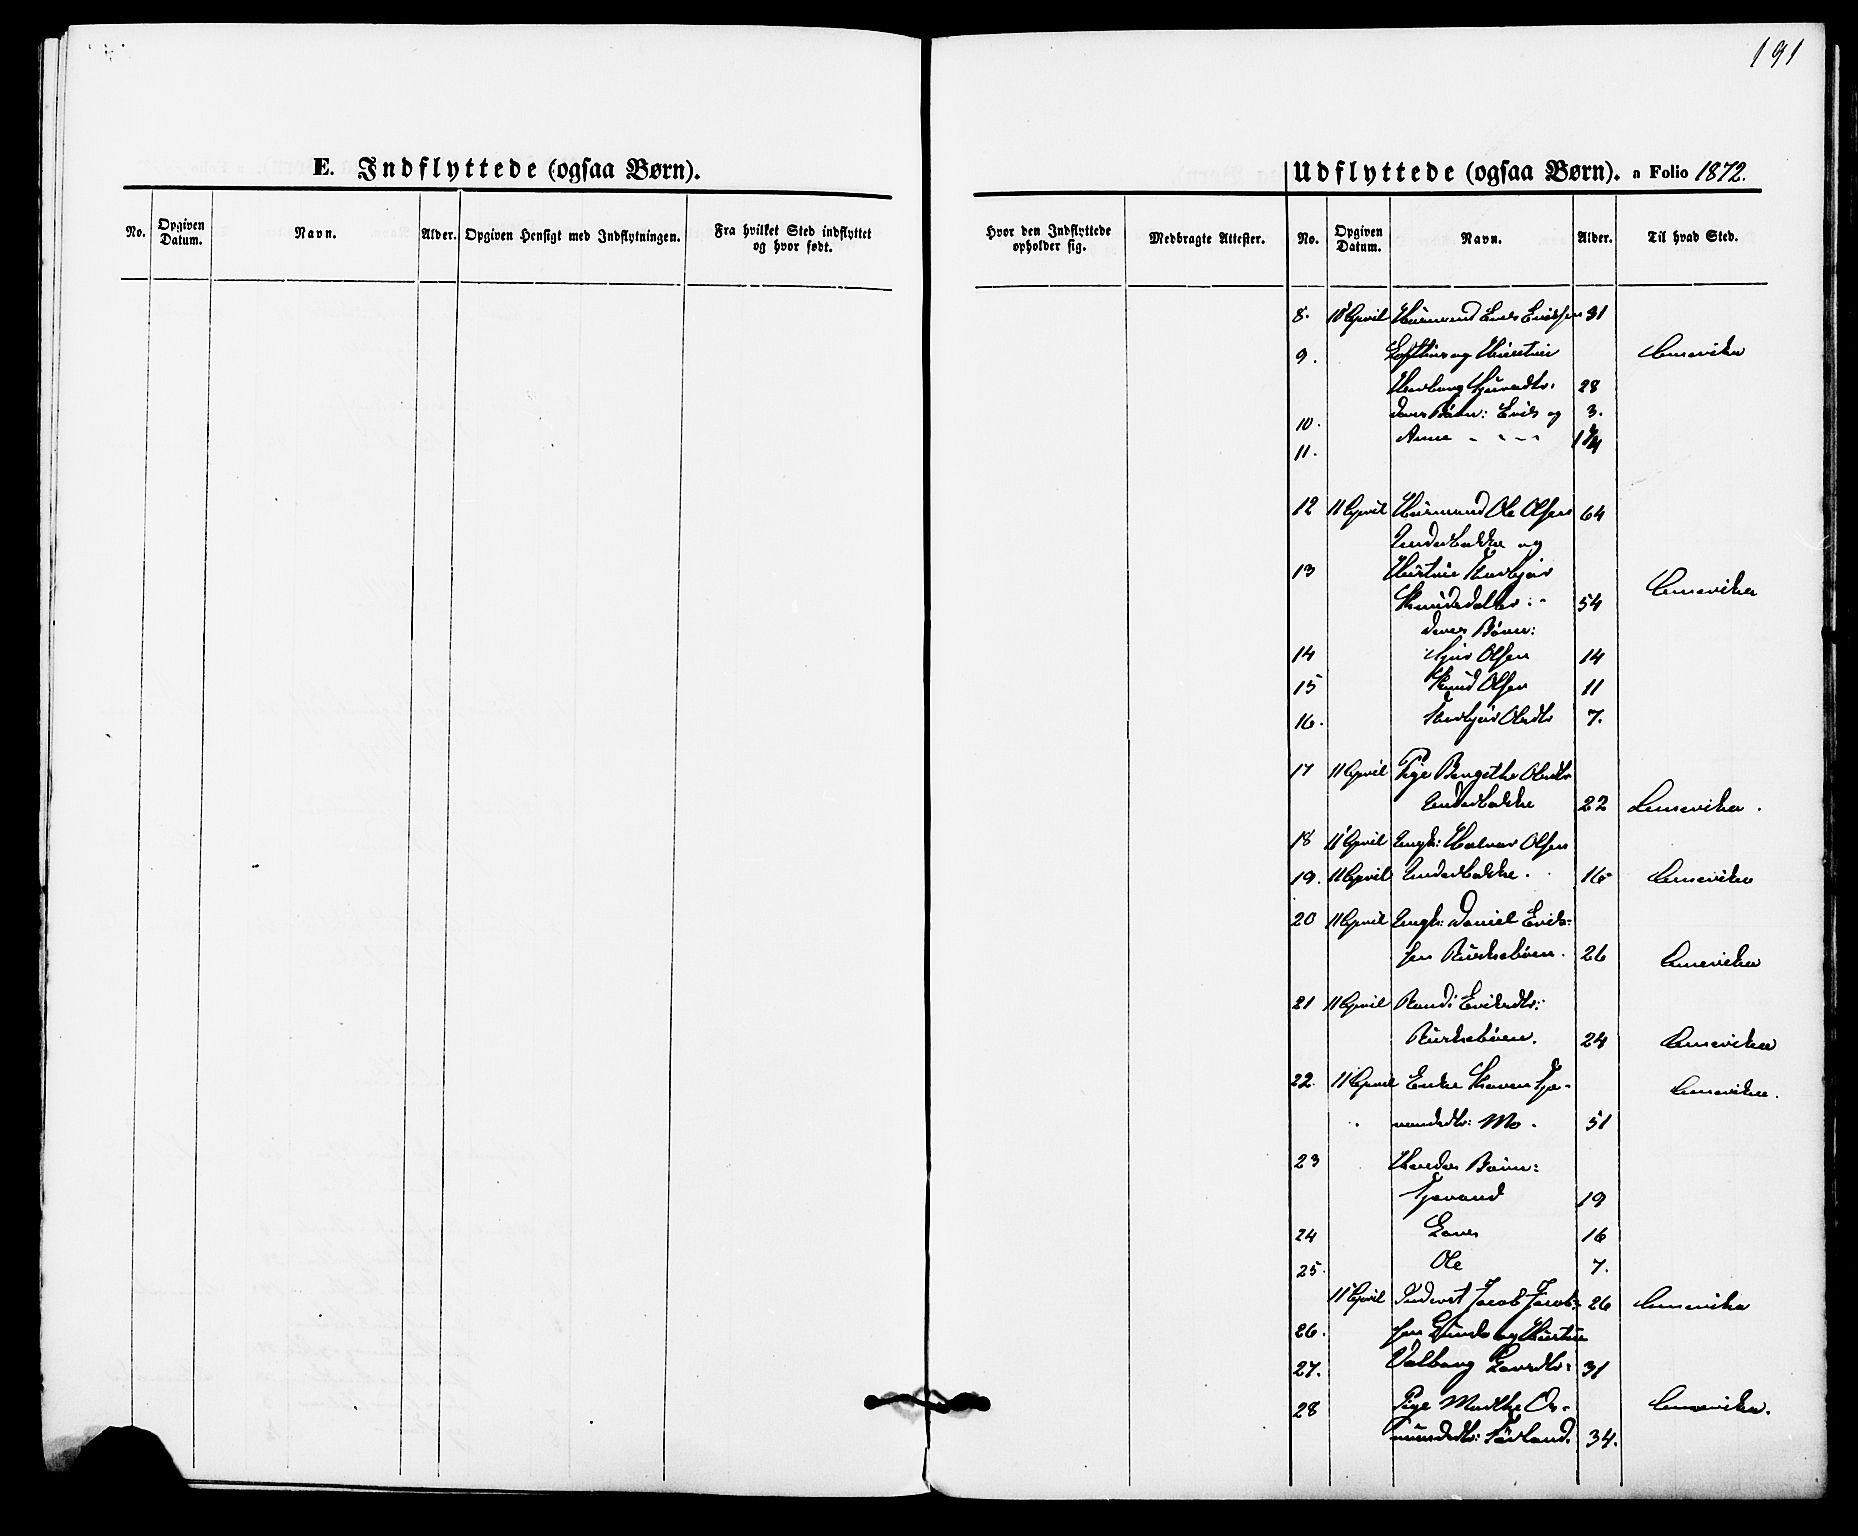 191
E. Indflyttede (ogsaa Børn).
No. Opgiven Datum. Navn. Alder. Opgiven Hensigt med Indflytningen. Fra hvilket Sted indflyttet og hvor født.
Hvor den Indflyttede opholder sig. Medbragte Attester.
Udflyttede (ogsaa Børn). a Folio 1872.
No. Opgiven Datum. Navn. Alder. Til hvad Sted.
8. 10 April Huusmand Lars Eriksen 31
9. og Hustrue Amerika
28
10. deres Børn: Erik og 3.
11. Anne 1 1/4
12 11 April Huusmand Ole Olsen 64
Underbakke og
13 Hustrue Thorbjør Amerika
Knudsdatter 54
deres Børn:
14 Olsen 14
15 Knud Olsen 11
16. Thorbjør Olsdtr 7.
17 11 April Pige Bengithe Olsdtr
Underbakke 22 Amerika.
18 11 April Ungk: Halvor Olsen
19. 11 April Underbakke. 16 Amerika
20 11 April Ungk: Daniel Erik-
sen 26 Amerika
21 11 April Randi Eriksdtr:
24 Amerika
22. 11 April Enke Karen Tje- Amerika.
randsdtr: Mo. 51
23 Hendes Børn:
Tjerand 19
24 Lars 16
25. Ole 7.
11 April Inderst Jacob Jacob- 26 Amerika
26. sen og Hustrue
27. Valborg Larsdtr: 31
28 Pige Marthe Os- Amerika.
mundsdtr: Førland. 34.